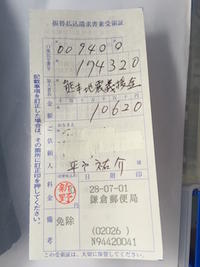 振替払込請求書兼受領証
00940 0
174320
熊本地震義援金
10620
平戸祐介
28-07-01
鎌倉郵便局
料金
備考
免除
(02026)
N94420041
この受領証は、大切に保管してください。
記載事項を訂正した場合は、その箇所に訂正印を押してください。